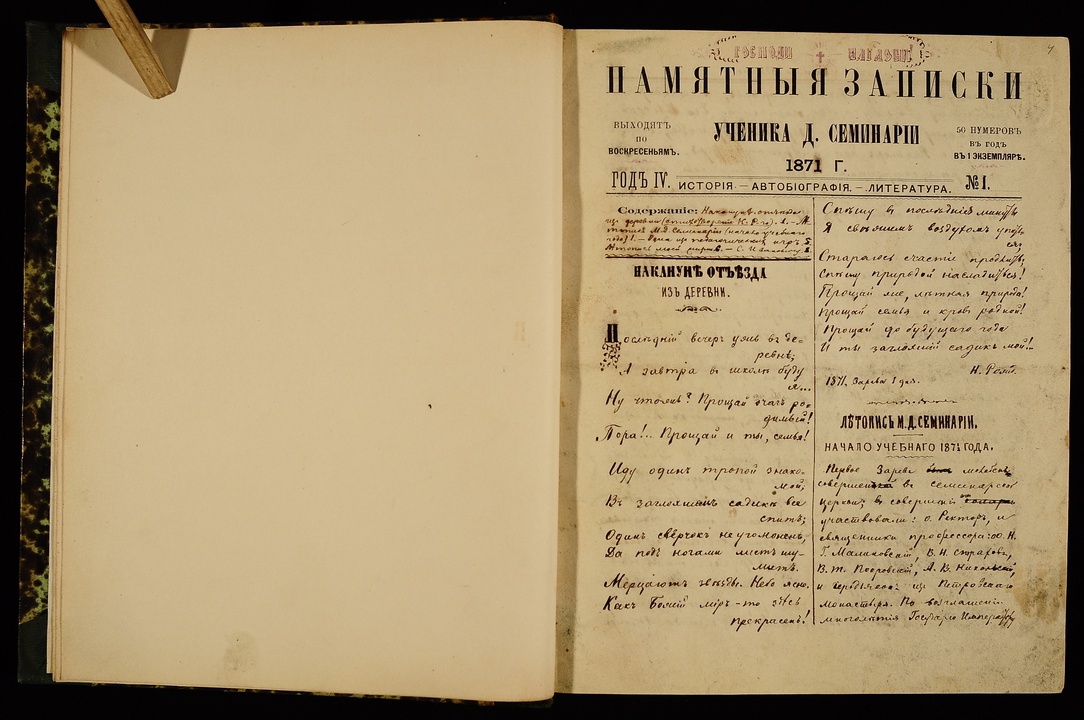 ГОСПОДИ БЛАГОСЛОВИ
7
ПАМЯТНЫЯ ЗАПИСКИ
ВЫХОДЯТЪ
ПО
ВОСКРЕСЕНЬЯМЪ.
УЧЕНИКА Д. СЕМИНАРІИ
1871 Г.
50 НУМЕРОВЪ
ВЪ ГОДЪ
ВЪ 1 ЭКЗЕМПЛЯРѢ.
ГОДЪ IV. ИСТОРІЯ. — АВТОБІОГРАФІЯ. — ЛИТЕРАТУРА. №1.
Содержаніе: Наканунѣ отъѣзда
изъ деревни (стихотвореніе Н. Р-го). 1. — Лѣ-
топись М.Д. Семинаріи (начало учебнаго
года) 1. — Одна изъ педагогическихъ игръ 5.
Лѣтопись моей жизни. —
НАКАНУНѢ ОТЪѢЗДА
ИЗЪ ДЕРЕВНИ.
Послѣдній вечеръ ужъ въ де-
ревнѣ;
А завтра въ школѣ буду
я...
Ну чтожъ? Прощай очагъ ро-
димый!
Пора!.. Прощай и ты, семья!
Иду одинъ тропой знако-
мой;
Въ заглохшемъ садикѣ все
спитъ;
Одинъ сверчокъ неугомоненъ,
Да подъ ногами листъ шу-
митъ.
Мерцаютъ звѣзды. Небо ясно.
Какъ Божій міръ-то здѣсь
прекрасенъ!
Спѣшу въ послѣднія минуты
Я свѣжимъ воздухомъ упить-
ся;
Стараюсь счастіе продлить,
Спѣшу природой насладиться!
Прощай же, лѣтняя природа!
Прощай семья и кровъ родной!
Прощай до будущаго года
И ты заглохшій садикъ мой!..
Н. Розов.
1871, Зарева 1 дня.
ЛѢТОПИСЬ М. Д. СЕМИНАРІИ.
НАЧАЛО УЧЕБНАГО 187½ ГОДА.
Первое Зарева молебсовъ
совершенъ въ семинарской
церкви; въ совершеніи
участвовали: о. Ректоръ, и
священники профессора: оо. Н.
Г. Малиновскій, В. Н. Страховъ,
В. П. Покровскій, А. В. Никольскій,
и іеродіаконъ изъ Петровскаго
монастыря. По возглашеніи
многолѣтія Государю Императору